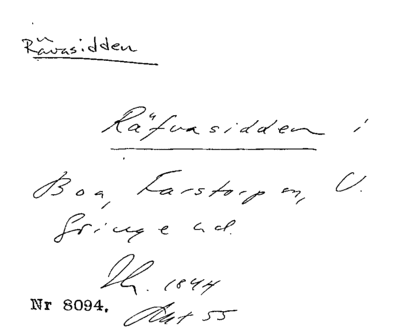 Rävasidden
Räfvasidden i
Boa, Farstorp sn, V.
Göinge hd.
Th. 1844
Akt 55
Nr 8094.